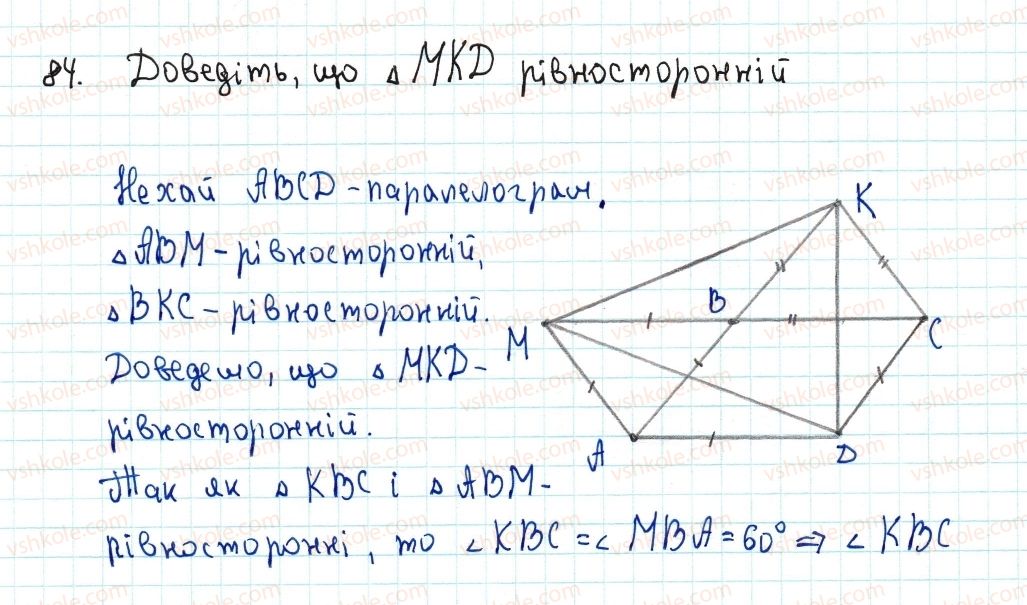 84. Доведіть, що △ MKD рівносторонній
Нехай ABCD - паралелограм.
△ ABM - рівносторонній,
△ BKC - рівносторонній.
Доведемо, що △ MKD -
рівносторонній.
Так як △ KBC і △ ABM -
рівносторонні, то ∠ KBC = ∠ MBA = 60° ⇒ ∠ KBC
K
B
M
C
A
D
vshkole.com